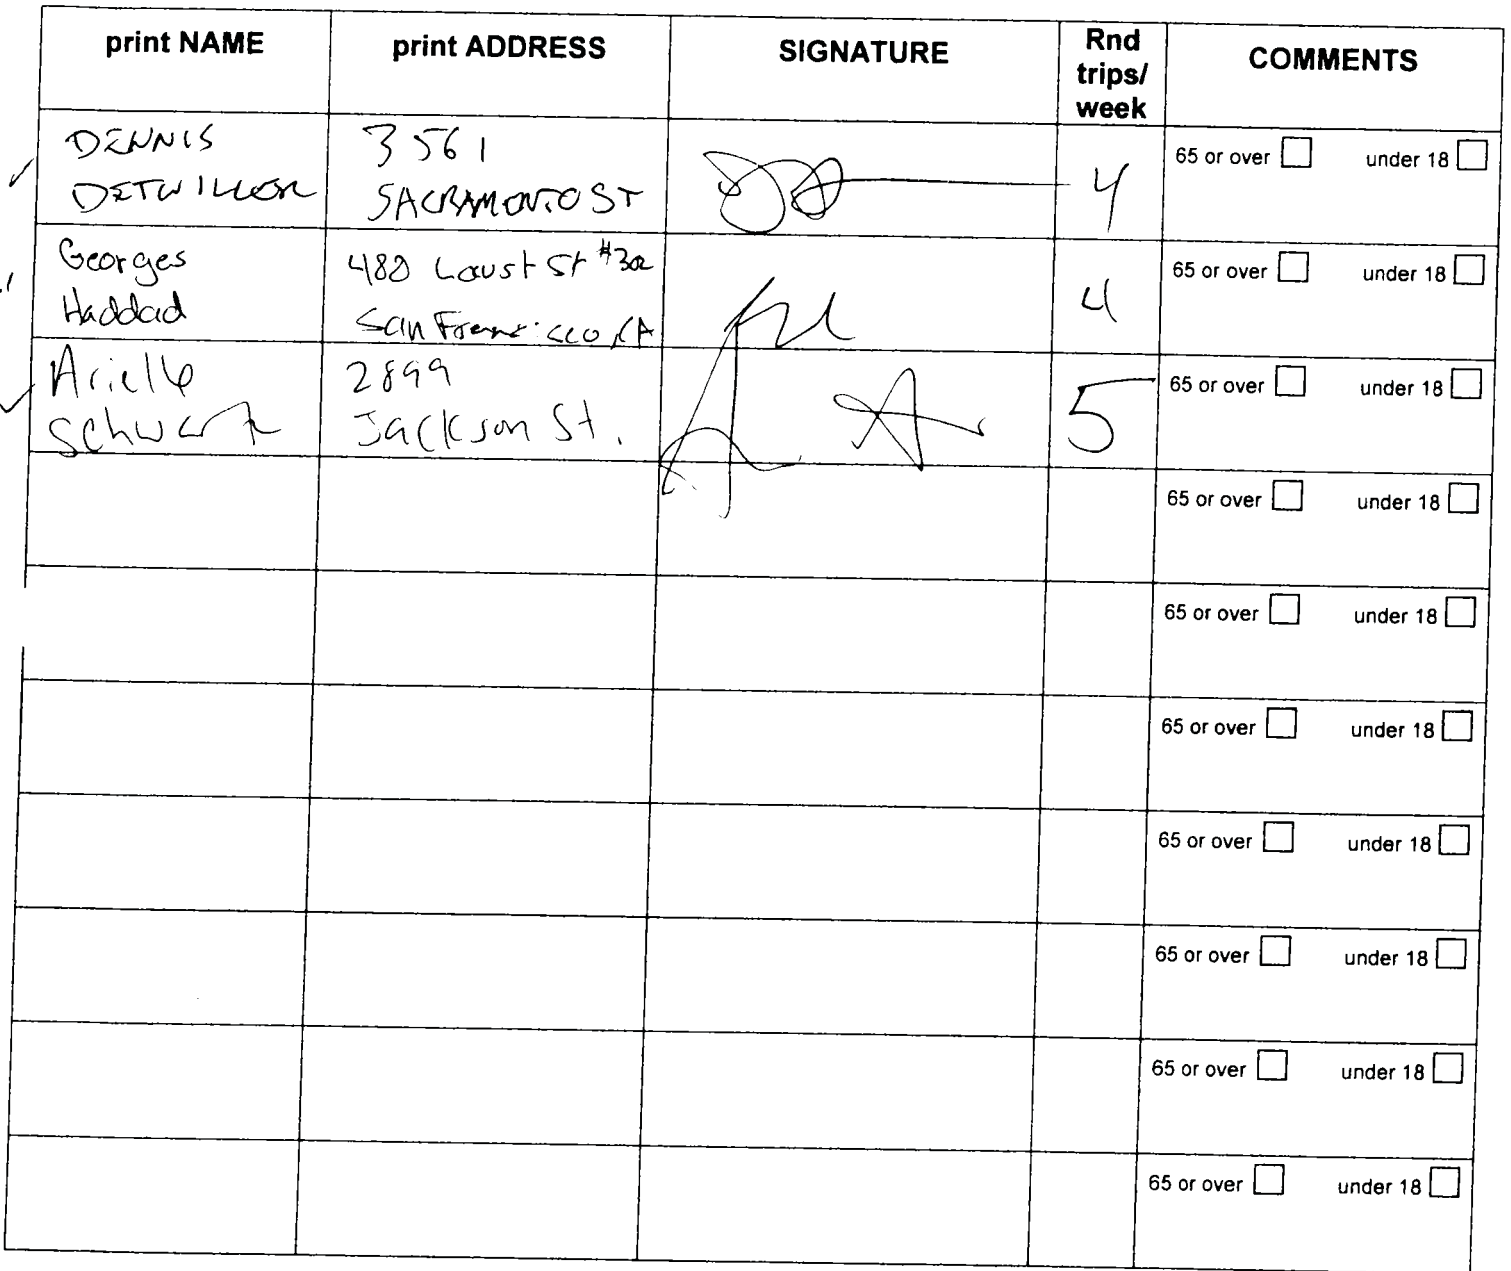 print NAME
print ADDRESS
SIGNATURE
Rnd
trips/
week
COMMENTS
DENNIS
DETWILLER
3561
SACRAMENTO ST
4
65 or over under 18
Georges
Haddad
480 Loust St #302
San Francisco, CA
4
65 or over under 18
Arielle
Schwartz
2899
Jackson St.
5
65 or over under 18
65 or over under 18
65 or over under 18
65 or over under 18
65 or over under 18
65 or over under 18
65 or over under 18
65 or over under 18